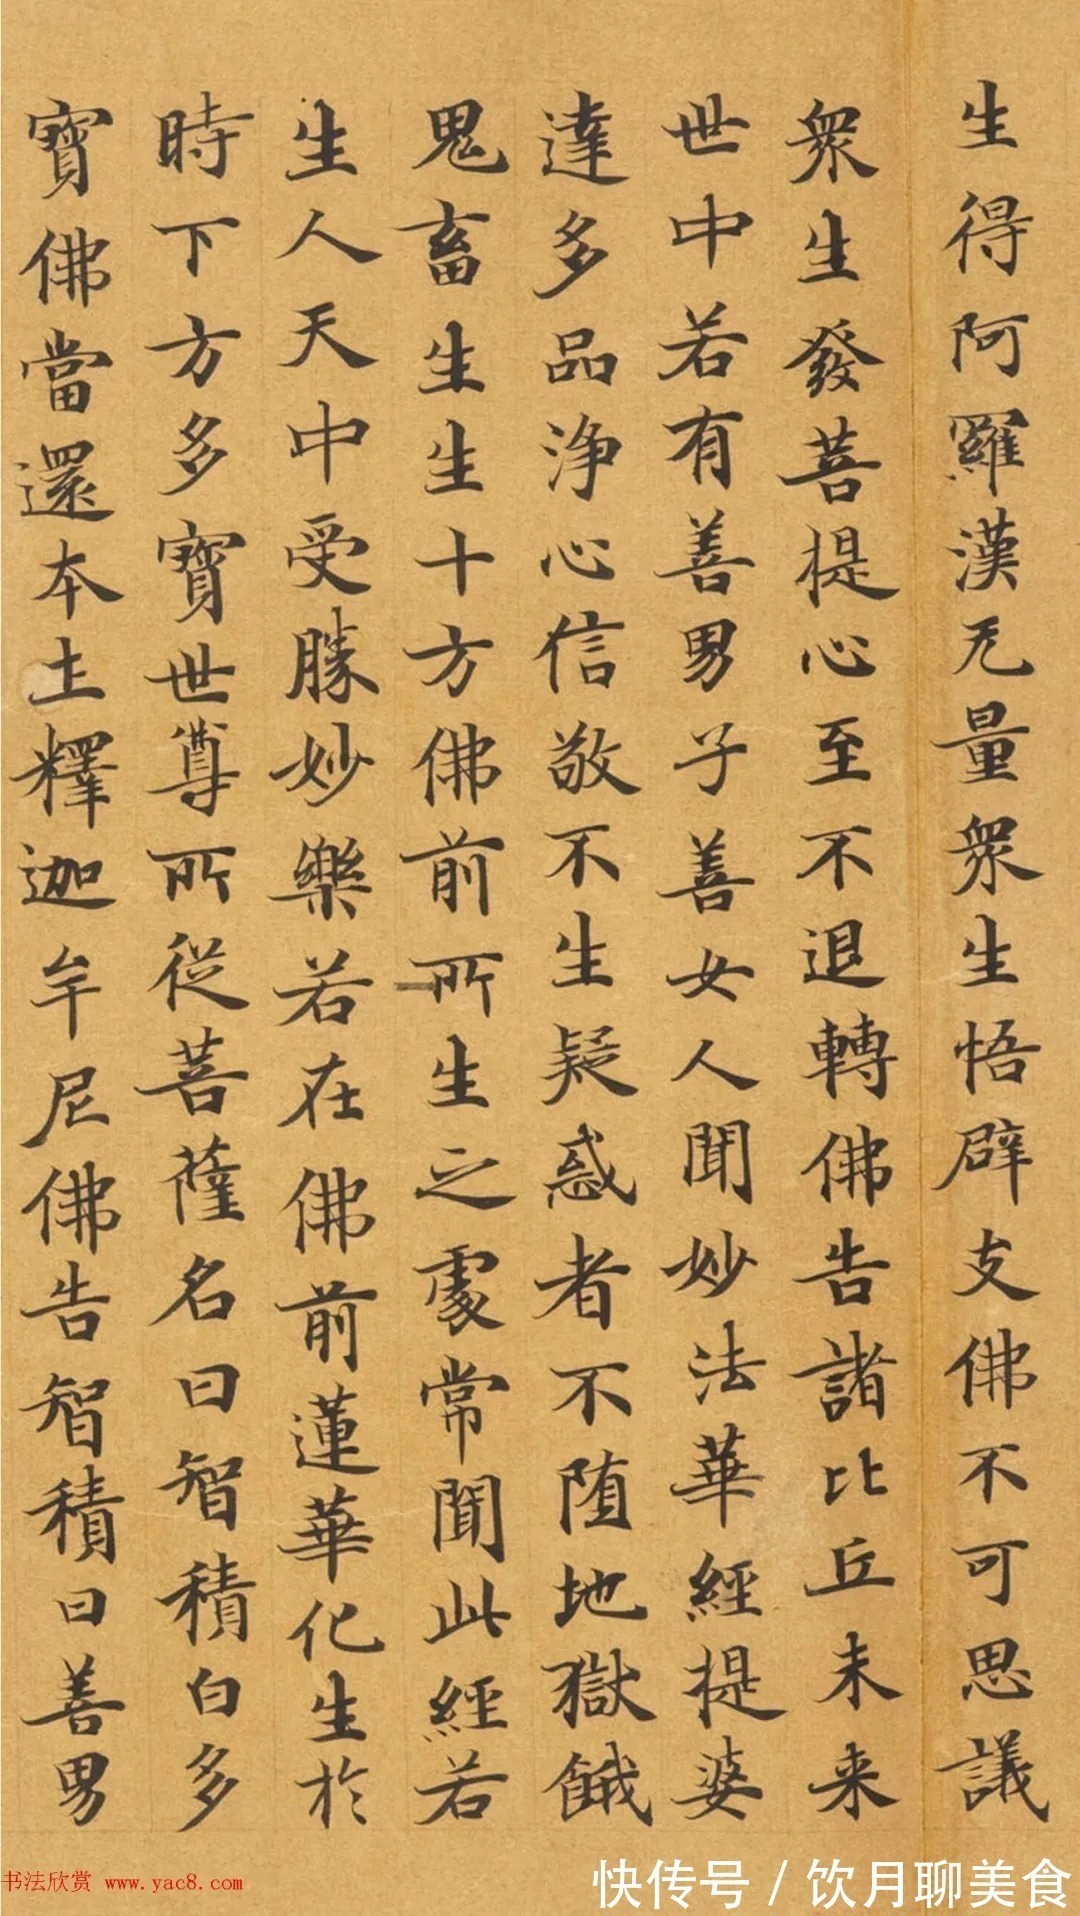 生得阿羅漢无量衆生悟辟支佛不可思議
衆生發菩提心至不退轉佛告諸比丘未来
世中若有善男子善女人聞妙法華經提婆
達多品淨心信敬不生疑惑者不堕地獄餓
鬼畜生生十方佛前所生之處常聞此經若
生人天中受勝妙樂若在佛前蓮華化生於
時下方多寶世尊所從菩薩名曰智積白多
寶佛當還本土釋迦牟尼佛告智積曰善男
书法欣赏 www.yac8.com
快传号 / 饮月聊美食